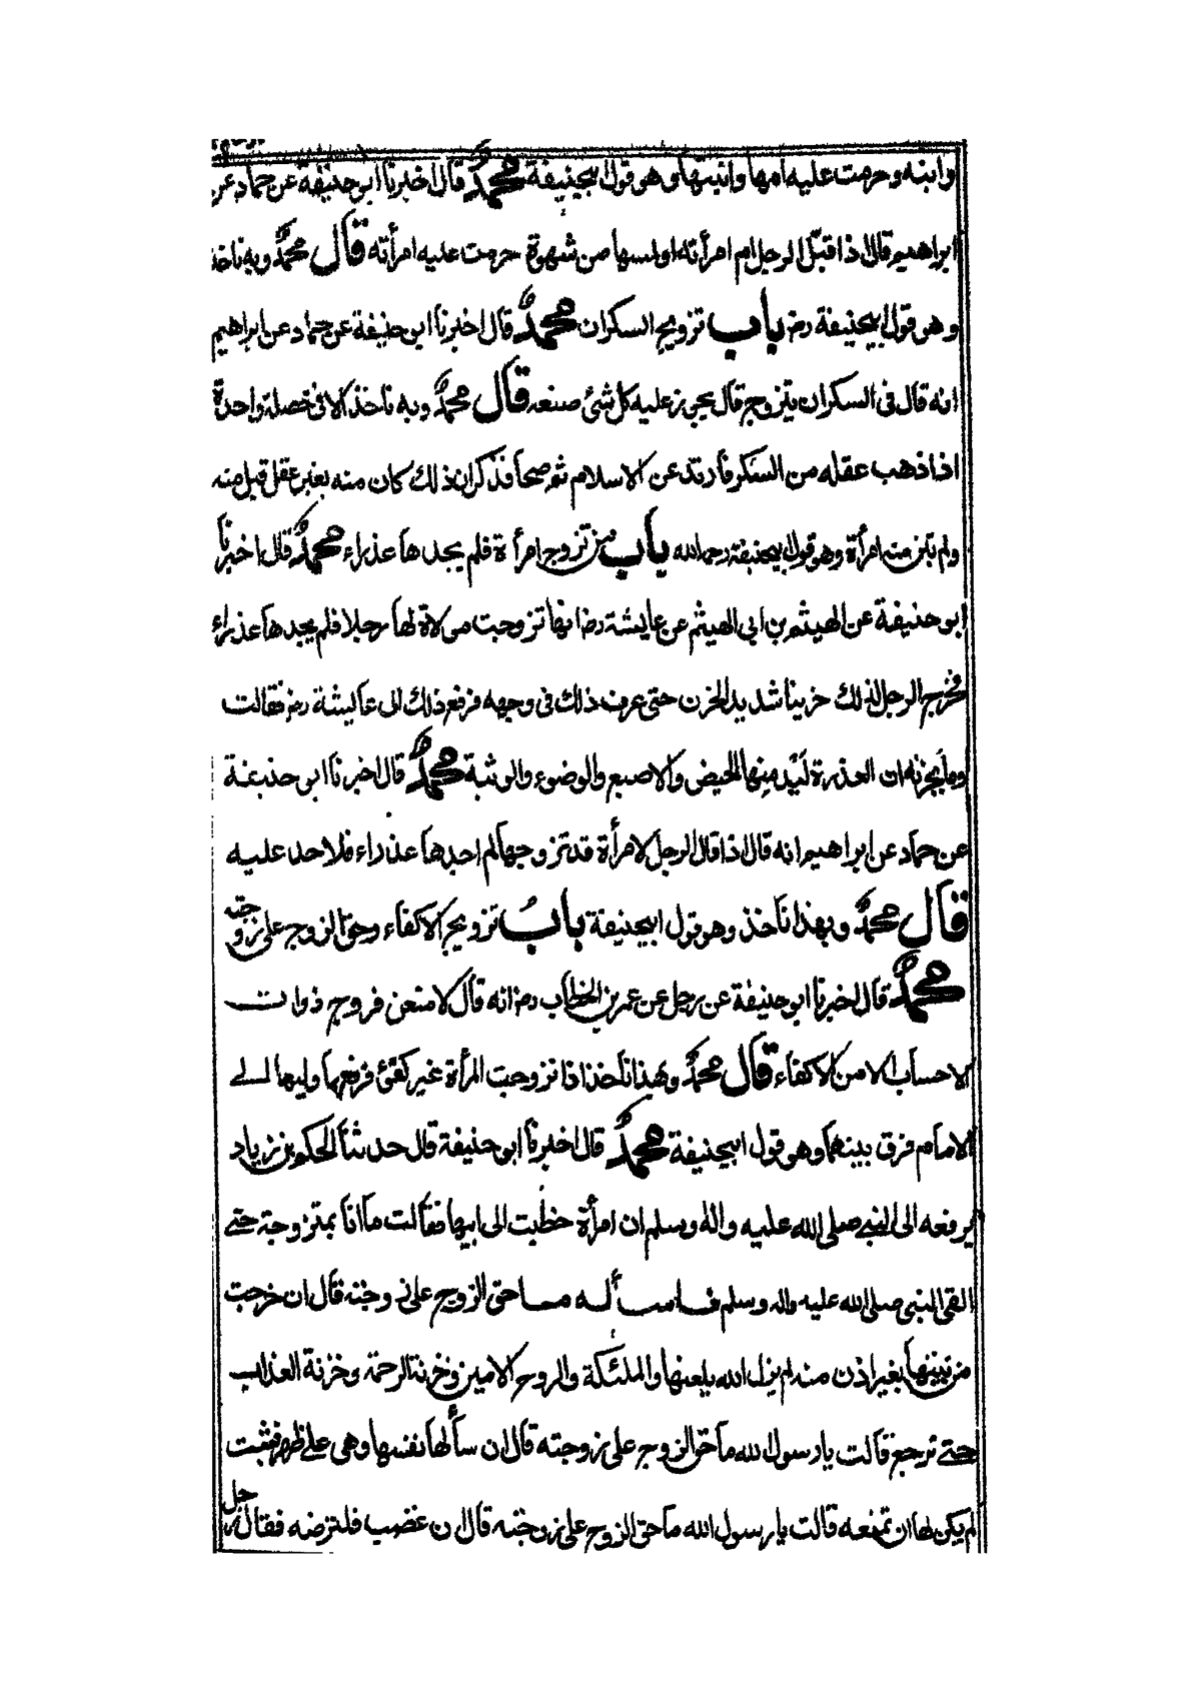 وابنه وحرمت عليه امها وابنتها وهو قول ابيحنيفة محمدٌ قال اخبرنا ابوحنيفة عن حماد عن
ابراهيم قال اذا قبّل الرجل ام امرأته او لمسها من شهوة حرمت عليه امرأته قال محمدٌ وبه ناخذ
وهو قول ابيحنيفة رض باب تزويج السكران محمدٌ قال اخبرنا ابوحنيفة عن حماد عن ابراهيم
انه قال فى السكران يتزوج قال يجوز عليه كل شئ صنعه قال محمدٌ وبه ناخذ الا فى خصلة واحدة
اذا ذهب عقله من السكر فارتد عن الاسلام ثم صحا فذكر ان ذلك كان منه بغير عقل قبل منه
ولم تبن منه امرأة وهو قول ابيحنيفة رحمه الله باب من تزوج امرأة فلم يجدها عذراء محمدٌ قال اخبرنا
ابوحنيفة عن الهيثم بن ابى الهيثم عن عايشة رض انها تزوجت مولاة لها رجلا فلم يجدها عذراء
فخرج الرجل لذلك حزينا شديد الحزن حتى عرف ذلك فى وجهه فرفع ذلك الى عائيشة رض فقالت
وما يحزنه ان العذرة ليذهبها الحيض والاصبع والوضوء والوثبة محمدٌ قال اخبرنا ابوحنيفة
عن حماد عن ابراهيم انه قال اذا قال الرجل لامرأة قد تزوجها لم اجدها عذراء فلا حد عليه
قال محمدٌ وبهذا ناخذ وهو قول ابيحنيفة بابُ تزويج الاكفاء وحق الزوج على زوجته
محمدٌ قال اخبرنا ابوحنيفة عن رجل عن عمر بن الخطاب رض انه قال لامنعن فروج ذوات
الاحساب الا من الاكفاء قال محمدٌ وبهذا ناخذ اذا تزوجت المرأة غير كفئ فرفعها وليها الى
الامام فرق بينهما وهو قول ابيحنيفة محمدٌ قال اخبرنا ابوحنيفة قال حدثنا الحكم بن زياد
يرفعه الى النبى صلى الله عليه واله وسلم ان امرأة خطبت الى ابيها فقالت ما انا بمتزوجة حتى
القى النبى صلى الله عليه واله وسلم فاسأله ما حق الزوج على زوجته قال ان خرجت
من بيتها بغير اذن منه لم يزل الله يلعنها والملئكة والروح الامين وخزنة الرحمة وخزنة العذاب
حتى ترجع قالت يا رسول الله ما حق الزوج على زوجته قال ان سألها نفسها وهى على ظهر قتب
لم يكن لها ان تمنعه قالت يا رسول الله ما حق الزوج على زوجته قال ان غضب فلترضه فقال رجل